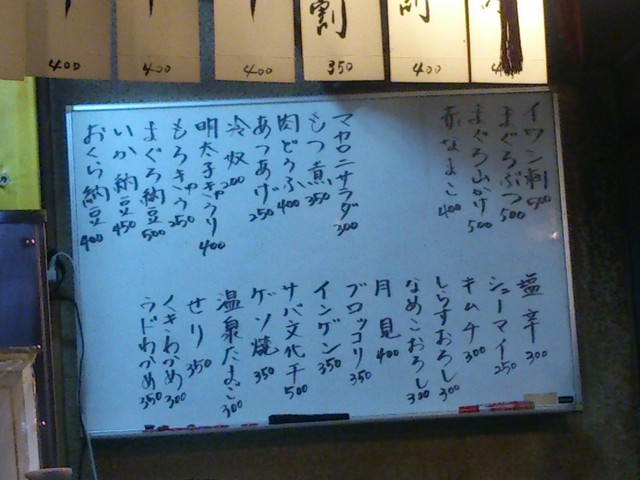 400
400
400
割
350
割
400
4
イワシ刺 500
まぐろぶつ 500
まぐろ山かけ 500
赤なまこ 400
マカロニサラダ 300
もつ煮 350
肉どうふ 400
あつあげ 250
冷奴 200
明太子きゅうり 400
もろきゅう 250
まぐろ納豆 500
いか納豆 450
おくら納豆 400
塩辛 300
シューマイ 250
キムチ 300
しらすおろし 300
なめこおろし 300
月見 400
ブロッコリ 350
インゲン 350
サバ文化干 500
ゲソ焼 350
温泉たまご 300
せり 350
くきわかめ 300
うどわかめ 350